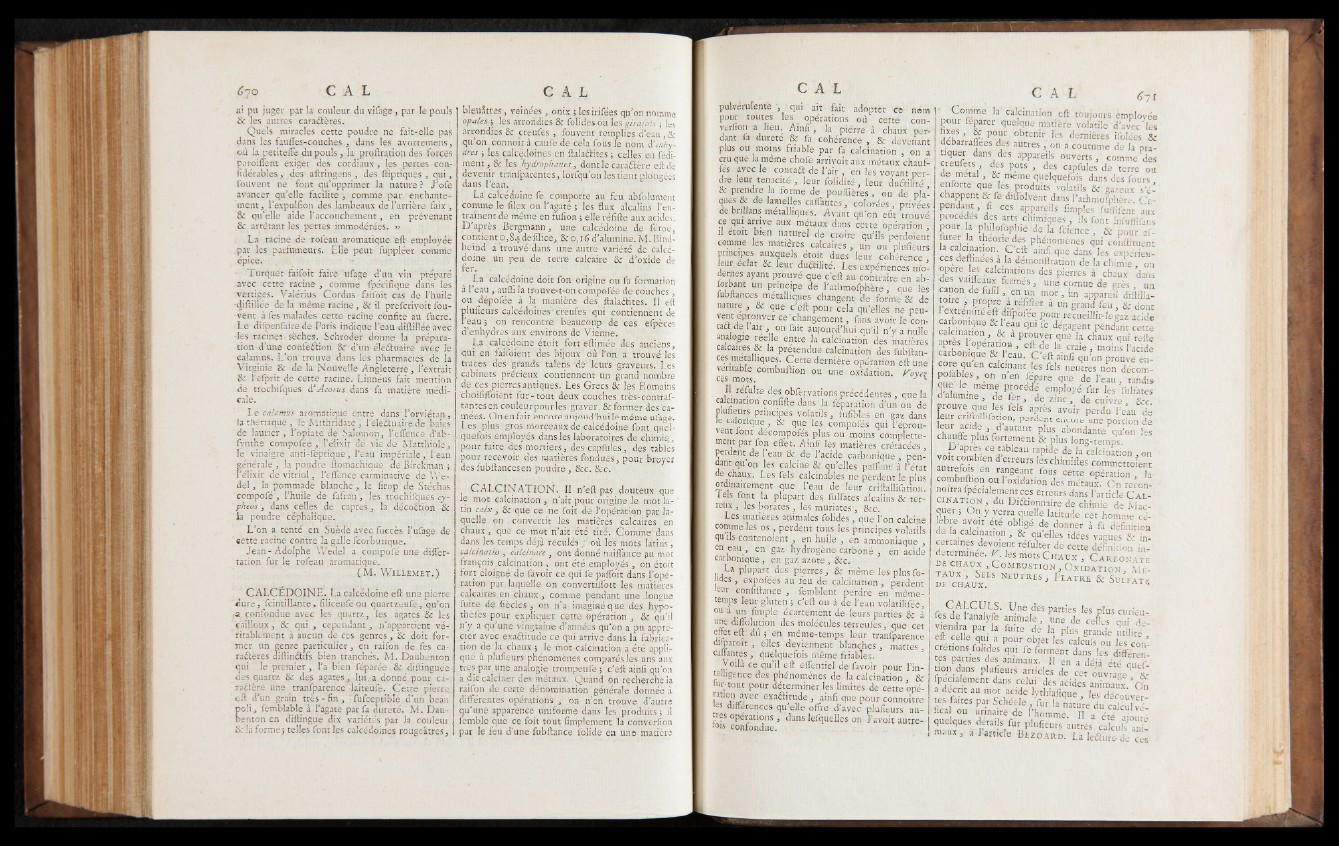 670 C A L
ai pu juger par la couleur du visage, par le pouls
& les autres caractères.
Quels miracles cette poudre ne fait-elle pas
dans les fausses-couches, dans les avortemens,
où la petitesse du pouls, la prostration des forces
paroissent exiger des cordiaux, les pertes con-
sidérables, des astringens, des stiptiques, qui,
souvent ne font qu'opprimer la nature ? J'ose
avancer qu'elle facilite, comme par enchante-
ment, l'expulsion des lambeaux de l'arrière faix,
& qu'elle aide l'accouchement, en prévenant
& arrêtant les pertes immodérées. »
La racine de roseau aromatique est employée
par les parfumeurs. Elle peut suppléer comme
épice.
Turquet faisoit faire usage d'un vin préparé
avec cette racine, comme spécifique dans les
vertiges. Valérius Cordus faisoit cas de l'huile
distillée de la même racine, & il prescrivoit sou-
vent à ses malades cette racine confite au sucre.
Le dispensaire de Paris indique l'eau distillée avec
les racines sèches. Schroder donne la prépara-
tion d'une confection & d'un électuaire avec le
calamus. L'on trouve dans les pharmacies de la
Virginie & de la Nouvelle Angleterre, l'extrait
& l'esprit de cette racine. Linneus fait mention
de trochisques d'Acorus dans sa matière médi-
cale.
Le calamus aromatique entre dans l'orviétan,
la thériaque, le Mithridate, l'électuaire de baies
de laurier, l'opiate de Salomon, l'essence d'ab-
synthe composée, l'élixir de vie de Matthiole,
le vinaigre anti-septique, l'eau impériale, l'eau
générale, la poudre stomachique de Birckman ;
l'élixir de vitriol, l'essence carminative de We-
del, la pommade blanche, le sirop de Stéchas
composé, l'huile de safran, les trochisques cy-
pheos, dans celles de capres, la décoction &
la poudre céphalique.
L'on a tenté en Suède avec succès l'usage de
cette racine contre la galle scorbutique.
Jean-Adolphe Wedel a composé une disser-
tation sur le roseau aromatique.
(M. WILLEMET.)
CALCÉDOINE. La calcédoine est une pierre
dure, scintillante, siliceuse ou quartzeuse, qu'on
a confondue avec les quartz, les agates & les
cailloux, & qui, cependant, n'appartient vé-
ritablement à aucun de ces genres, & doit for-
mer un genre particulier, en raison de ses ca-
ractères distinctifs bien tranchés. M. Daubenton
qui le premier, l'a bien séparée & distinguée
des quartz & des agates, lui a donné pour ca-
ractère une tranparence laiteuse. Cette pierre
est d'un grain très-fin, susceptible d'un beau
poli, semblable à l'agate par sa dureté. M. Dau-
benton en distingue dix variétés par la couleur
& la forme ; telles sont les calcédoines rougeâtres,
C A L
bleuâtres, veinées, onix ; les irisées qu'on nomme
opales ; les arrondies & solides ou les girasols ; les
arrondies & creuses, souvent remplies d'eau, &
qu'on connoît à cause de cela sous le nom d'enhy-
dres ; les calcédoines en stalactites ; celles en sédi-
ment, & les hydrophanes, dont le caractère est de
devenir tranfparentes, lorsqu'on les tient plongées
dans l'eau.
La calcédoine se comporte au feu absolument
comme le silex ou l'agate ; les flux alcalins l'en-
traînent de même en fusion ; elle résiste aux acides.
D'après Bergmann, une calcédoine de féroe,
contient 0,84 de silice, & 0,16 d'alumine. M. Bind-
heim a trouvé dans une autre variété de calcé-
doine un peu de terre calcaire & d'oxide de
fer.
La calcédoine doit son origine ou sa formation
à l'eau, aussi la trouve-t-on composée de couches,
ou déposée à la manière des stalactites. Il est
plusieurs calcédoines creuses qui contiennent de
l'eau ; on rencontre beaucoup de ces espèces
d'enhydres aux environs de Vienne.
La calcédoine étoit fort estimée des anciens,
qui en faisoient des bijoux où l'on a trouvé les
traces des grands talens de leurs graveurs. Les
cabinets précieux contiennent un grand nombre
de ces pierres antiques. Les Grecs & les Romains
choisissoient sur-tout deux couches très-contras-
tantes en couleur pour les graver & former des ca-
mées. On en fait encore aujourd'hui le même usage.
Les plus gros morceaux de calcédoine sont quel-
quefois employés dans les laboratoires de chimie,
pour faire des mortiers, des capsules, des tables
pour recevoir des matières fondues, pour broyer
des substances en poudre, &c. &c.
CALCINATION. Il n'est pas douteux que
le mot calcination, n'ait pour origine le mot la-
tin calx, & que ce ne soit de l'opération par la-
quelle on convertit les matières calcaires en
chaux, que ce mot n'ait été tiré. Comme dans
dans les temps déjà reculés ; où les mots latins,
calcinatio, calcinare, ont donné naissance au mot
françois calcination, ont été employés, on étoit
fort éloigné de savoir ce qui se passoit dans l'opé-
ration par laquelle on convertissoit les matières
calcaires en chaux, comme pendant une longue
suite de siècles, on n'a imaginé que des hypo-
thèses pour expliquer cette opération, & qu'il
n'y a qu'une vingtaine d'années qu'on a pu appré-
cier avec exactitude ce qui arrive dans la fabrica-
tion de la chaux ; le mot calcination a été appli-
qué à plusieurs phénomènes comparés les uns aux
autres par une analogie trompeuse ; c'est ainsi qu'on
a dit calciner des métaux. Quand on recherche la
raison de cette dénomination générale donnée à
différentes opérations, on n'en trouve d'autre
qu'une apparence uniforme dans les produits ; il
semble que ce soit tout simplement la conversion
par le feu d'une substance solide en une matière
C A L
pulvérulente, qui ait fait adopter ce nom
pour toutes les opérations où cette con-
version a lieu. Ainsi, la pierre à chaux per-
dant sa dureté & sa cohérence, & devenant
plus ou moins friable par sa calcination, on a
cru que la même chose arrivoit aux métaux chauf-
fés avec le contact de l'air, en les voyant per-
dre leur tenacité, leur solidité, leur ductilité,
& prendre la forme de poussières, ou de pla-
ques & de lamelles cassantes, colorées, privées
de brillans métalliques. Avant qu'on eût trouvé
ce qui arrive aux métaux dans cette opération,
il étoit bien naturel de croire qu'ils perdoient
comme les matières calcaires, un ou plusieurs
principes auxquels étoit dues leur cohérence,
leur éclat & leur ductilité. Les expériences mo-
dernes ayant prouvé que c'est au contraire en ab-
sorbant un principe de l'athmosphère, que les
substances métalliques changent de forme & de
nature, & que c'est pour cela qu'elles ne peu-
vent éprouver ce changement, sans avoir le con-
tact de l'air, on sait aujourd'hui qu'il n'y a nulle
analogie réelle entre la calcination des matières
calcaires & la prétendue calcination des substan-
ces métalliques. Cette dernière opération est une
véritable combustion ou une oxidation. Voyez
ces mots.
Il résulte des observations précédentes, que la
calcination consiste dans la séparation d'un ou de
plusieurs principes volatils, fusibles en gaz dans
le calorique, & que les composés qui l'éprou-
vent sont décomposés plus ou moins complette-
ment par son effet. Ainsi les matières crétacées,
perdent de l'eau & de l'acide carbonique, pen-
dant qu'on les calcine & qu'elles passent à l'état
de chaux. Les sels calcinables ne perdent le plus
ordinairement que l'eau de leur cristallisation.
Tels sont la plupart des sulfates alcalins & ter-
reux, les borates, les muriates, &c.
Les matières animales solides, que l'on calcine
comme les os, perdent tous les principes volatils
qu'ils contenoient, en huile, en ammoniaque,
en eau, en gaz hydrogène carboné, en acide
carbonique, en gaz azote, &c.
La plupart des pierres, & même les plus so-
lides, exposées au feu de calcination, perdent
leur consistance, semblent perdre en même-
temps leur gluten ; c'est ou à de l'eau volatilisée,
ou à un simple écartement de leurs parties & à
une dissolution des molécules terreuses, que cet
effet est dû ; en même-temps leur tranfparence
disparoît, elles deviennent blanches, mattes,
cassantes, quelquefois même friables.
Voilà ce qu'il est essentiel de savoir pour l'in-
telligence des phénomènes de la calcination, &
sur-tout pour déterminer les limites de cette opé-
ration avec exactitude, ainsi que pour connoître
les différences qu'elle offre d'avec plusieurs au-
tres opérations, dans lesquelles on l'avoit autre-
fois confondue.
C A L 671
Comme la calcination est toujours employée
pour séparer quelque matière volatile d'avec les
fixes, & pour obtenir les dernières isolées &
débarrassées des autres, on a coutume de la pra-
tiquer dans des appareils ouverts, comme des
creusets, des pots, des capsules de terre ou
de métal, & même quelquefois dans des fours,
ensorte que les produits volatils & gazeux s'é-
chappent & se dissolvent dans l'athmosphère. Ce-
pendant, si ces appareils simples suffisent aux
procédés des arts chimiques, ils sont insuffisans
pour la philosophie de la science, & pour as-
surer la théorie des phénomènes qui constituent
la calcination. C'est ainsi que dans les expérien-
ces destinées à la démonstration de la chimie, on
opère les calcinations des pierres à chaux dans
des vaisseaux fermés, une cornue de grès, un
canon de fusil, en un mot, un appareil distilla-
toire, propre à résister à un grand feu, & dont
l'extrémité est disposée pour recueillir le gaz acide
carbonique & l'eau qui se dégagent pendant cette
calcination, & à prouver que la chaux qui reste
après l'opération, est de la craie, moins l'acide
carbonique & l'eau. C'est ainsi qu'on prouve en-
core qu'en calcinant les sels neutres non décom-
posables, on n'en sépare que de l'eau, tandis
que le même procédé employé sur les sulfates
d'alumine, de fer, de zinc, de cuivre, &c.
prouve que les sels après avoir perdu l'eau de
leur cristallisation, perdent encore une portion de
leur acide, d'autant plus abondante qu'on les
chauffe plus fortement & plus long-temps.
D'après ce tableau rapide de la calcination, on
voit combien d'erreurs les chimistes commettoient
autrefois en rangeant sous cette opération, la
combustion ou l'oxidation des métaux. On recon-
noîtra spécialement ces erreurs dans l'article CAL-
CINATION, du Dictionnaire de chimie de Mac-
quer ; On y verra quelle latitude cet homme cé-
lèbre avoit été obligé de donner à sa définition
de la calcination, & qu'elles idées vagues & in-
certaines devoient résulter de cette définition in-
déterminée. V. les mots CHAUX, CARBONATE
DE CHAUX, COMBUSTION, OXIDATION, MÉ-
TAUX, SELS NEUTRES, PLATRE & SULFATE
DE CHAUX.
CALCULS. Une des parties les plus curieu-
ses de l'analyse animale, une de celles qui de-
viendra par la suite de la plus grande utilité,
est celle qui a pour objet les calculs ou les con-
crétions solides qui se forment dans les différen-
tes parties des animaux. Il en a déjà été ques-
tion dans plusieurs articles de cet ouvrage, &
spécialement dans celui des acides animaux. On
a décrit au mot acide lythiasique, les découver-
tes faites par Schéele, sur la nature du calcul vé-
sical ou urinaire de l'homme. Il a été ajouté
quelques détails sur plusieurs autres calculs ani-
maux, à l'article BÉZOARD. La lecture de ces